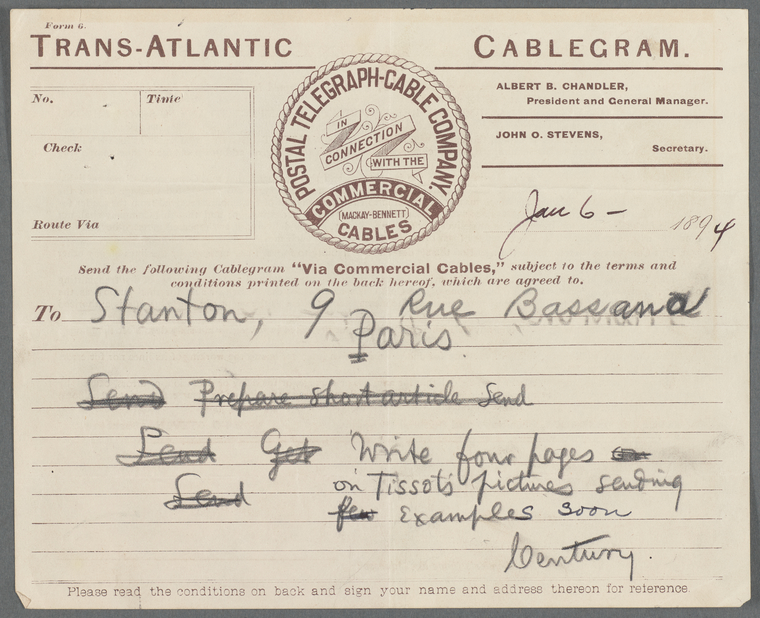 Form 6.
TRANS-ATLANTIC CABLEGRAM.
No. Time
Check
Route Via
POSTAL TELEGRAPH-CABLE COMPANY.
IN
CONNECTION
WITH THE
COMMERCIAL
(MACKAY-BENNETT)
CABLES
ALBERT B. CHANDLER,
President and General Manager.
JOHN O. STEVENS,
Secretary.
Jan 6 - 1894
Send the following Cablegram "Via Commercial Cables," subject to the terms and
conditions printed on the back hereof, which are agreed to.
To Stanton, 9 Rue Bassano
Paris
Send Prepare short article Send
Send Get Write four pages
Send on Tissots pictures sending
few examples soon
Century.
Please read the conditions on back and sign your name and address thereon for reference.